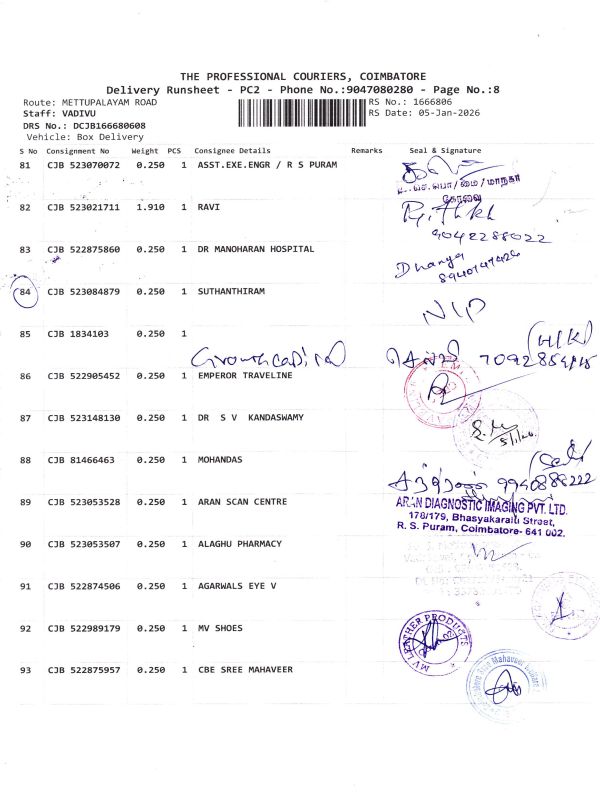 THE PROFESSIONAL COURIERS, COIMBATORE
Delivery Runsheet - PC2 - Phone No.:9047080280 - Page No.:8
Route: METTUPALAYAM ROAD
RS No.: 1666806
Staff: VADIVU
RS Date: 05-Jan-2026
DRS No.: DCJB166680608
Vehicle: Box Delivery
S No Consignment No Weight PCS Consignee Details Remarks Seal & Signature
81 CJB 523070072 0.250 1 ASST.EXE.ENGR / R S PURAM
கோவை
82 CJB 523021711 1.910 1 RAVI
9042288022
83 CJB 522875860 0.250 1 DR MANOHARAN HOSPITAL
Dhanya
8940747426
84 CJB 523084879 0.250 1 SUTHANTHIRAM
N/P
85 CJB 1834103 0.250 1
Growth capital
86 CJB 522905452 0.250 1 EMPEROR TRAVELINE
87 CJB 523148130 0.250 1 DR S V KANDASWAMY
5/1/26
88 CJB 81466463 0.250 1 MOHANDAS
9940888222
89 CJB 523053528 0.250 1 ARAN SCAN CENTRE
ARAN DIAGNOSTIC IMAGING PVT. LTD.
178/179, Bhasyakaralu Street,
R. S. Puram, Coimbatore- 641 002.
90 CJB 523053507 0.250 1 ALAGHU PHARMACY
91 CJB 522874506 0.250 1 AGARWALS EYE V
92 CJB 522989179 0.250 1 MV SHOES
MV LEATHER PRODUCTS
93 CJB 522875957 0.250 1 CBE SREE MAHAVEER